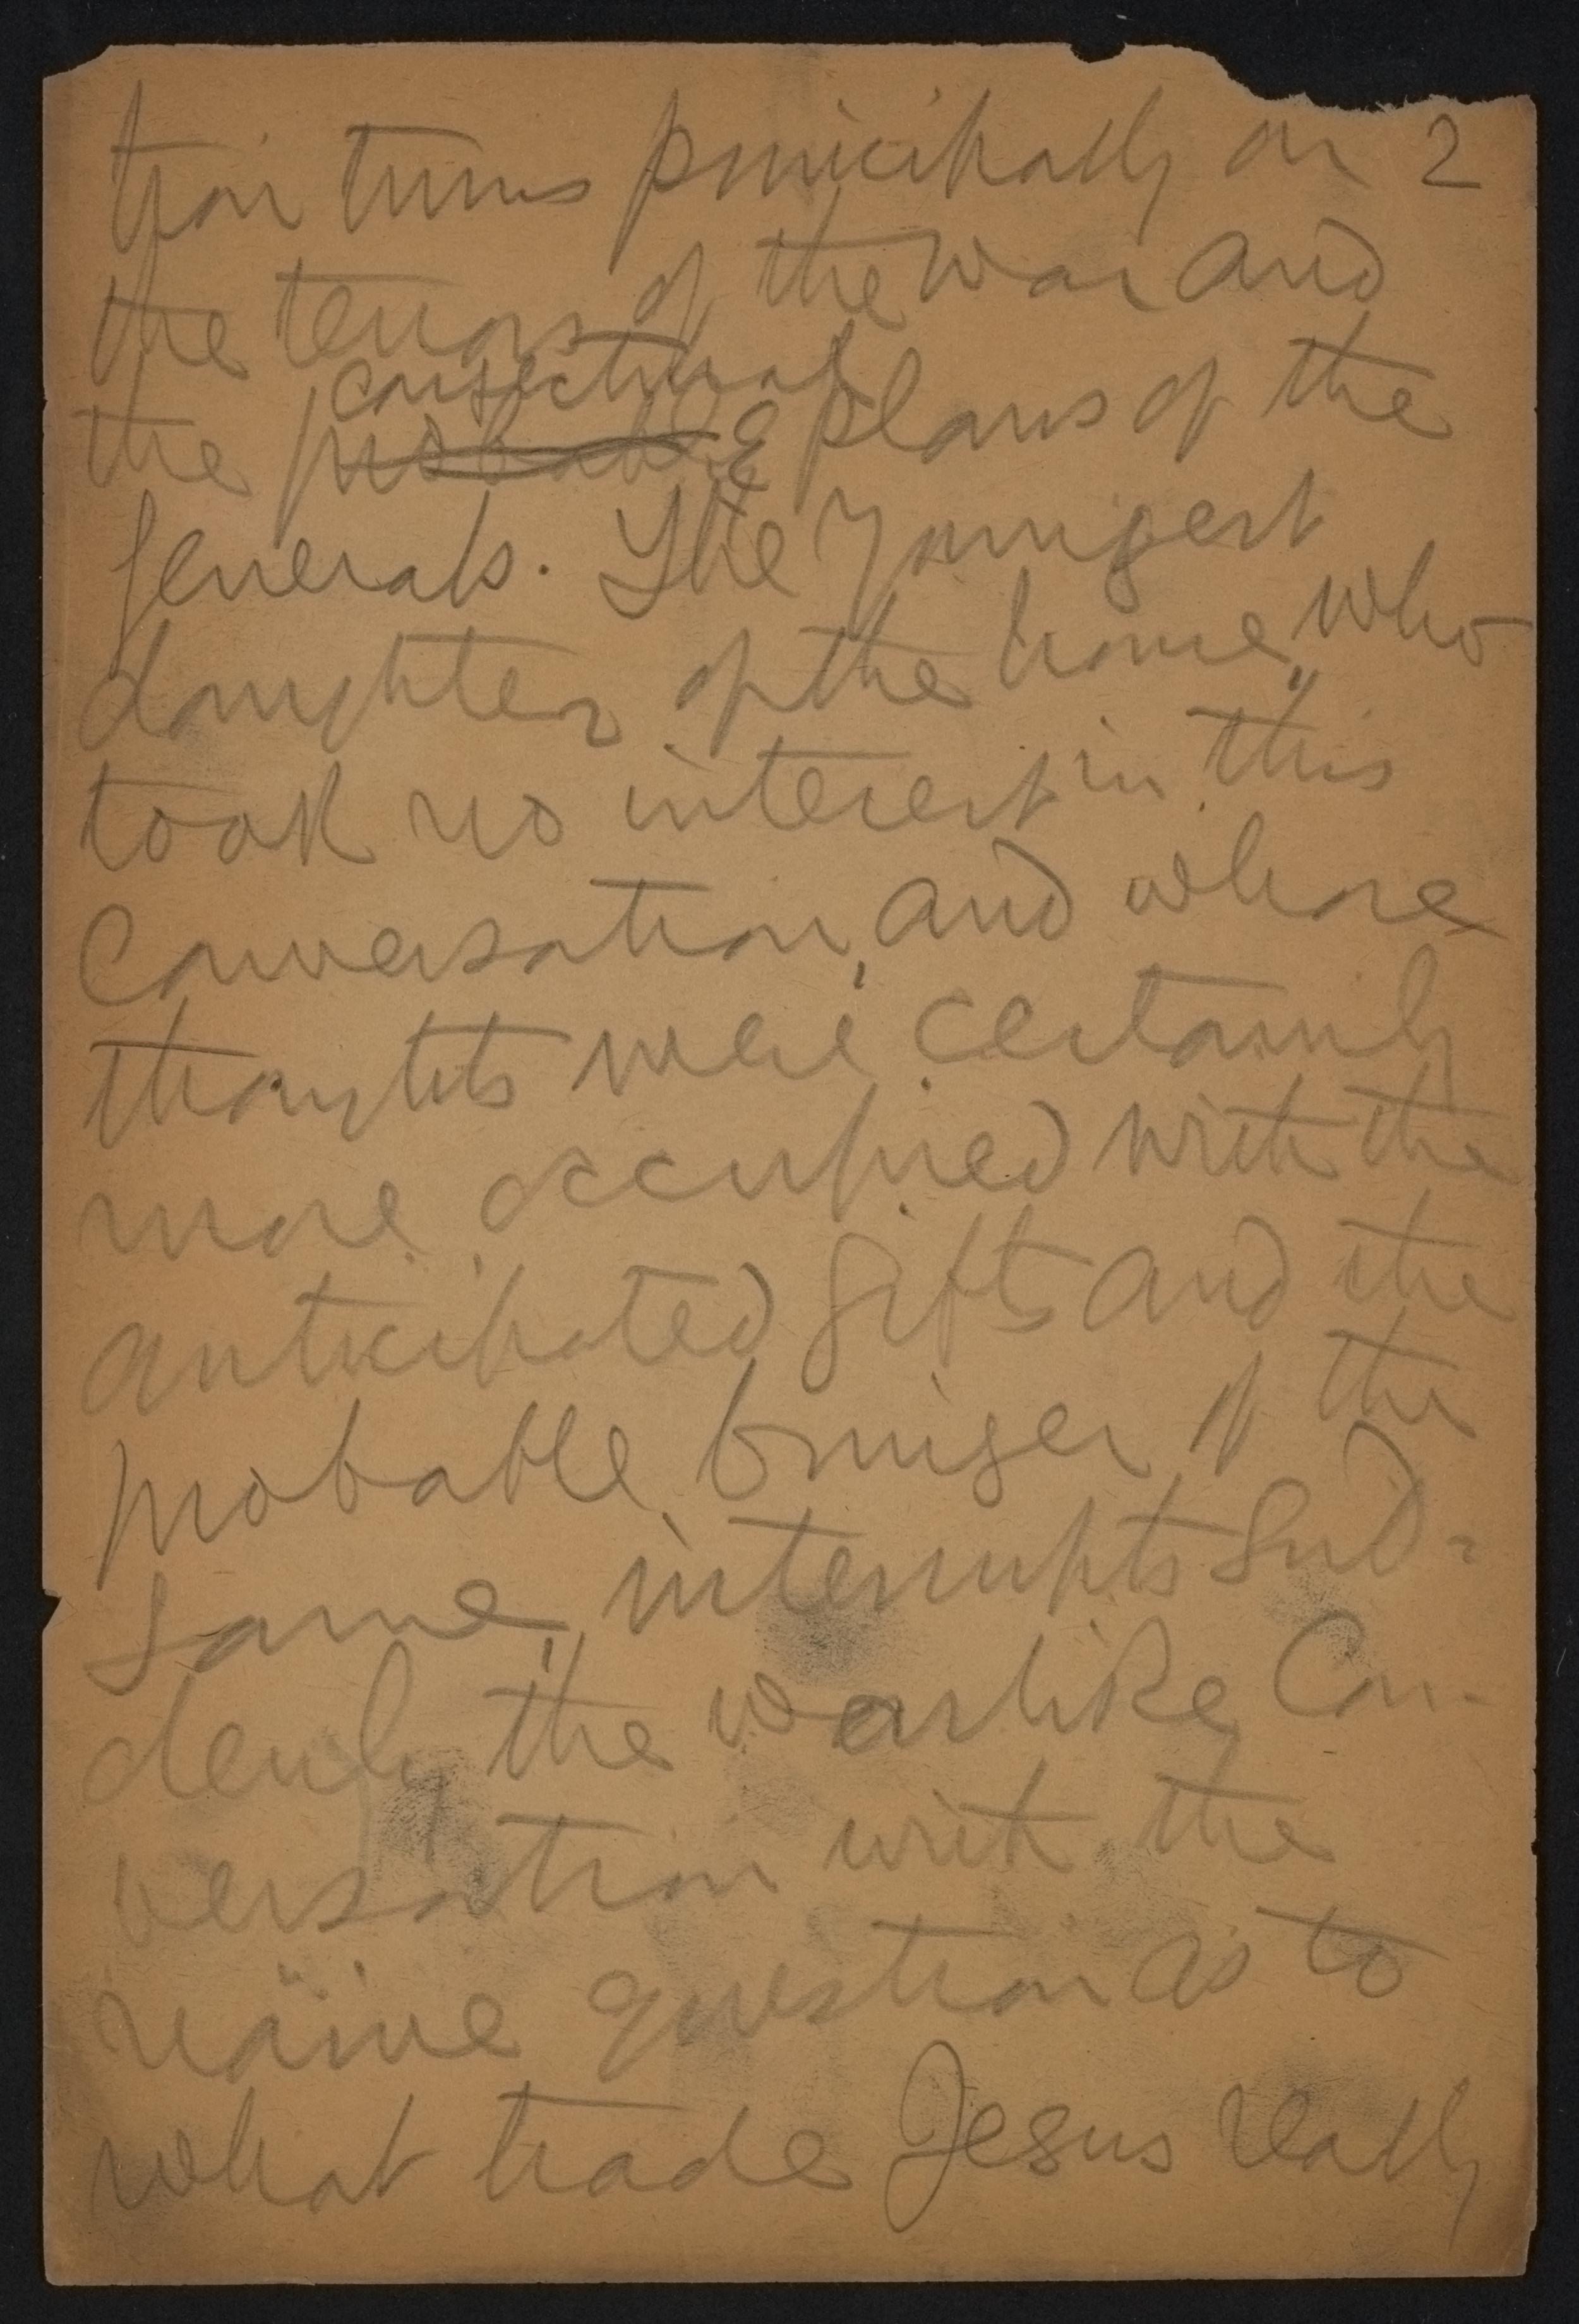 tion turns principally on 2
the terrors of the war and
conjectural
the probable plans of the
generals. The youngest
daughter of the house, who
took no interest in this
conversation, and whose
thoughts were certainly
more occupied with the
anticipated gifts and the
probable bringer of the
same, interrupts sud-
denly the warlike con-
versation with the
naïve question as to
what trade Jesus really